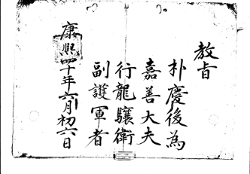 教旨
朴慶後為
嘉善大夫
行龍驤衛
副護軍者
康熙四十年六月初六日